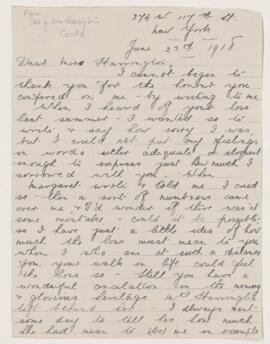 274 W. 117th St.
New York
June 23rd 1918
Dear Miss Harrington,
I cannot begin to
thank you for the honour you
conferred on me by writing to me
When I heard of your loss
last summer - I wanted so to
write & say how sorry I was
but I could not put my feelings
in words either adequate or eloquent
enough to express just how much I
sorrowed with you. When
Margaret wrote & told me I cried
so - then a sort of numbness came
over me & I'd wonder if there was not
some mistake - could it be possible;
so I have just a little idea of how
much the loss must mean to you
when I who am at such a distance
from your walk in life could feel
the loss so - Still you have a
wonderful consolation in the memory
& glorious heritage Mrs Harrington
left behind her. I always meant
some day to tell her how much
she had meant to me in example